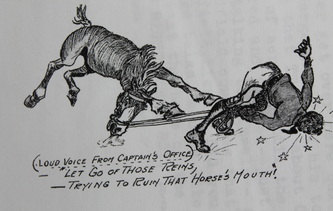 (LOUD VOICE FROM CAPTAIN'S OFFICE)
— "LET GO OF THOSE REINS,
— TRYING TO RUIN THAT HORSE'S MOUTH!"